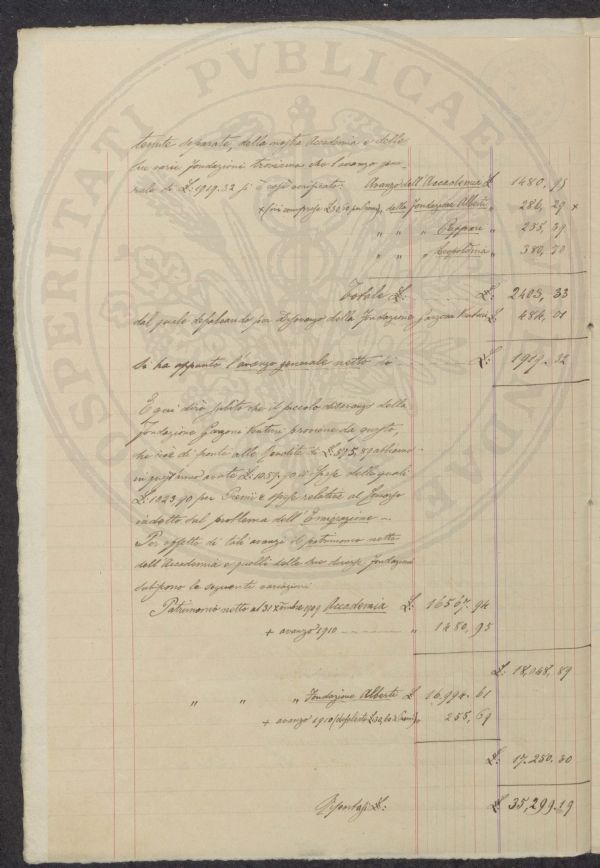 tenute separate, della nostra Accademia e delle
sue varie fondazioni troviamo che l'avanzo gene
rale di L: 1919.32 si è così verificato: Avanzo dell'Accademia £ 1480,95
+ (ivi comprese L 30,60 pei Premi) „ della fondazione Alberti „ 286,29 +
„ „ „ 255,39
„ „ „ Leopoldina „ 380,70
Totale L: £: 2403,33
dal quale defalcando per disavanzo della fondazione Garzoni Venturi £ 484,01
Si ha appunto l'avanzo generale netto di £: 1919.32
E qui dirò subito che il piccolo disavanzo della
fondazione Garzoni Venturi proviene da questo
che noi di fronte alle Rendite di L. 575,89 abbiamo
in quest'anno avute L: 1059.90 di spese delle quali
L. 1023.90 per Premi e spese relative al Concorso
indetto sul problema dell'Emigrazione.
Per effetto di tali avanzi il patrimonio netto
dell'Accademia e quelli delle sue diverse fondazioni
subirono le seguenti variazioni
Patrimonio netto al 31 Xembre 1909 Accademia L: 16567.94
+ avanzo 1910 „ 1480,95
£: 18,048,89
„ „ „ Fondazione Alberti £ 16,994.61
+ avanzo 1910 (defalcato L 30,60 Premi) „ 255,69
£: 17.250.30
Riportasi L: £ 35,299.19
PROSPERITATI PVBLICAE AVGENDAE